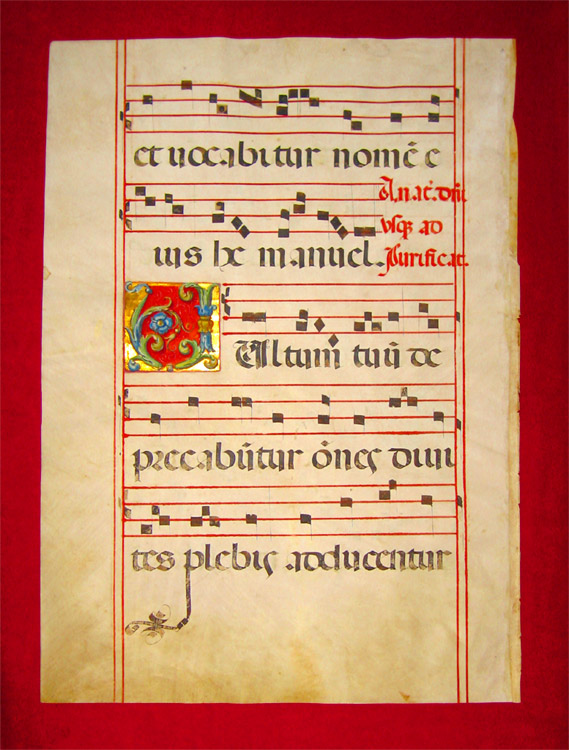 et vocabitur nomē e
ius hemanuel.
A. nat̄. dn̄i
usq; ad
Purificat.
Vultum tuū de
precabūtur ōnes divi
tes plebis adducentur